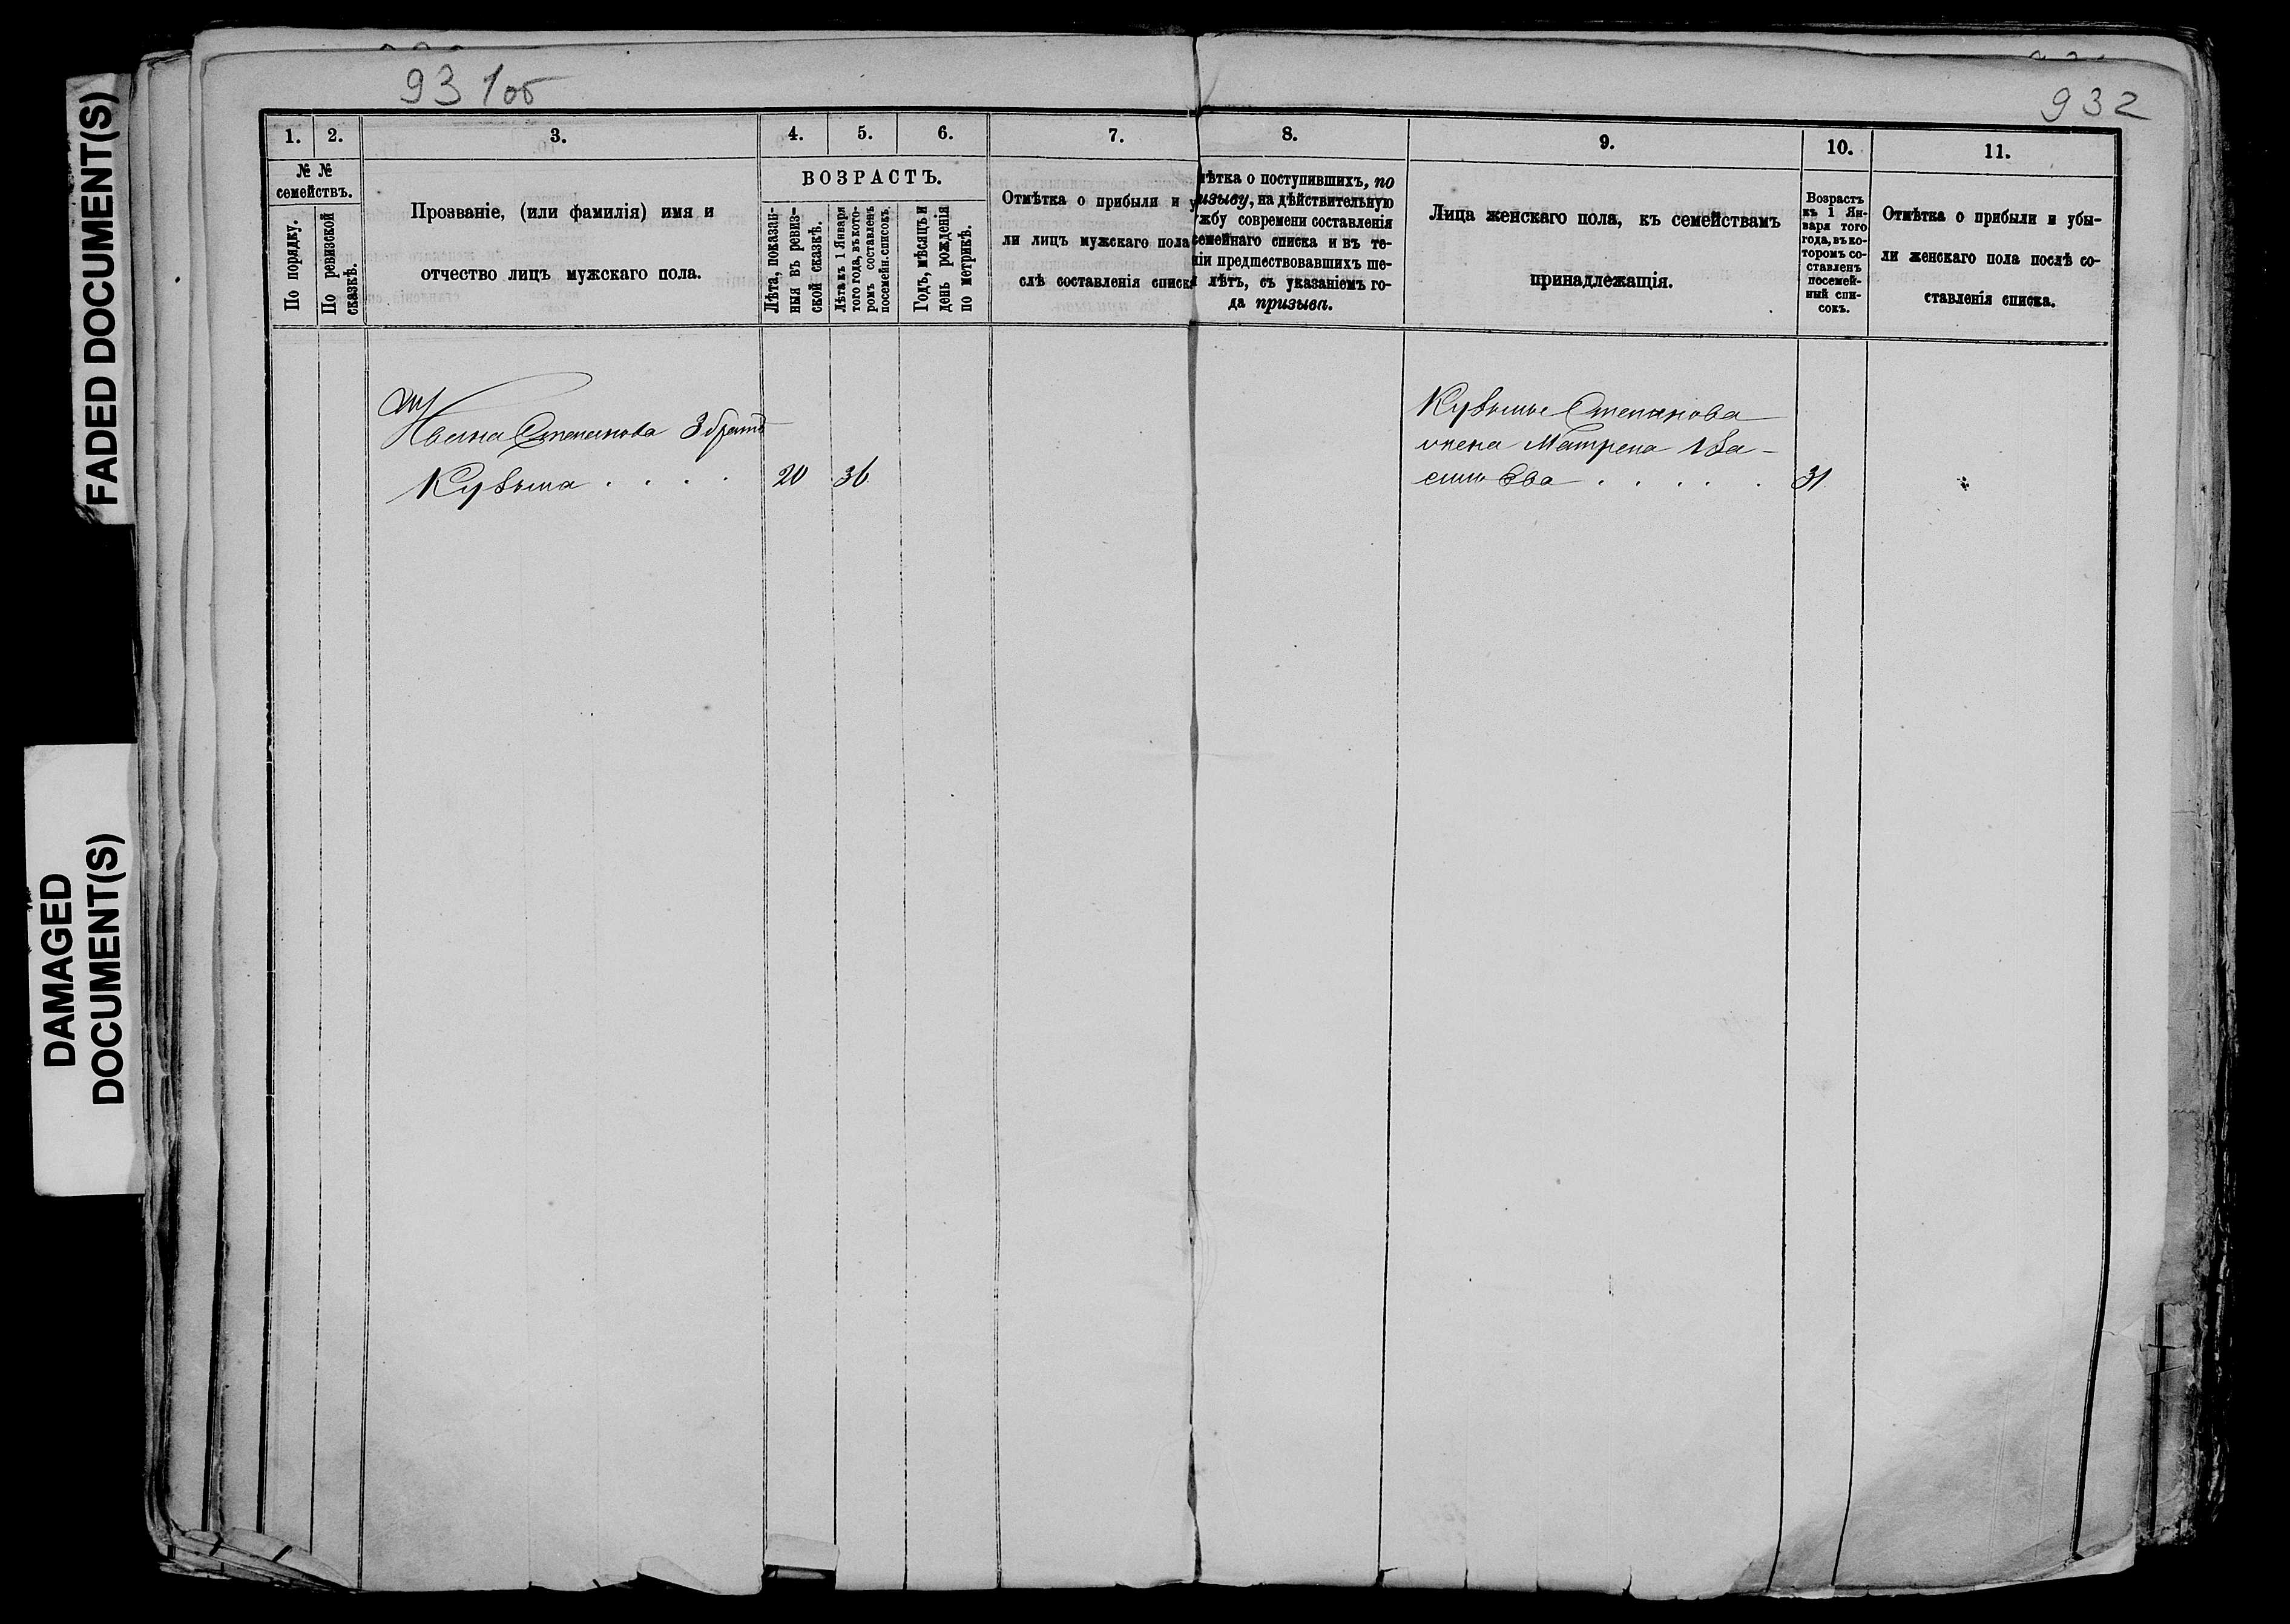 FADED DOCUMENT(S)
DAMAGED
DOCUMENT(S)
931об
932
1.
2.
3.
4.
5.
6.
7.
8.
9.
10.
11.
№ №
семействъ.
По порядку.
По ревизской
сказкѣ.
Прозваніе, (или фамилія) имя и
отчество лицъ мужскаго пола.
ВОЗРАСТЪ.
Лѣта, показан-
ныя въ ревиз-
ской сказкѣ.
Лѣта къ 1 Января
того года, въ кото-
ромъ составленъ
посемейн. списокъ.
Годъ, мѣсяцъ и
день рожденія
по метрикѣ.
Отмѣтка о прибыли и у
ли лицъ мужскаго пола
слѣ составленія списка
ѣтка о поступившихъ, по
изыву, на дѣйствительную
жбу современи составленія
семейнаго списка и въ те-
ніи предшествовавшихъ ше-
лѣтъ, съ указаніемъ го-
да призыва.
Лица женскаго пола, къ семействамъ
принадлежащія.
Возрастъ
къ 1 Ян-
варя того
года, въ ко-
торомъ со-
ставленъ
посемей-
ный спи-
сокъ.
Отмѣтка о прибыли и убы-
ли женскаго пола послѣ со-
ставленія списка.
Ивана Степанова 3 братъ
Кузьма . . . . 20 36
Кузьмы Степанова
жена Матрена Ва-
сильева . . . . . 31